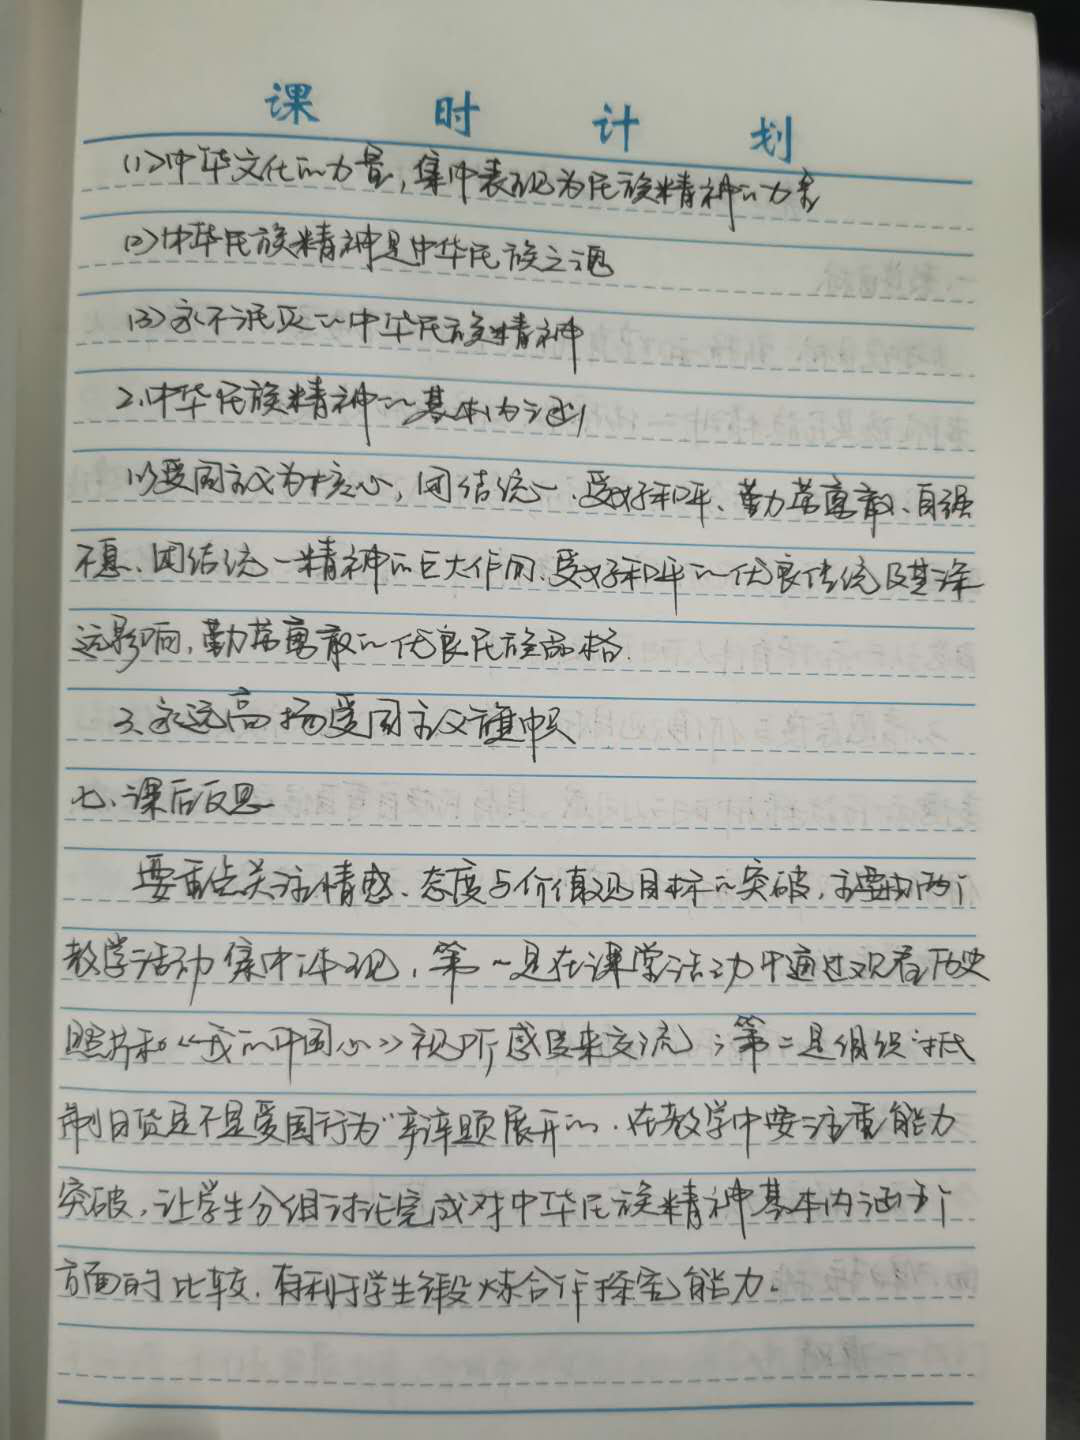 课时计划
(1)中华文化的力量,集中表现为民族精神的力量
(2)中华民族精神是中华民族之魂
(3)永不泯灭的中华民族精神
2.中华民族精神的基本内涵
以爱国主义为核心,团结统一、爱好和平、勤劳勇敢、自强
不息、团结统一精神的巨大作用、爱好和平的优良传统及其深
远影响,勤劳勇敢的优良民族品格.
3.永远高扬爱国主义旗帜
七、课后反思
要重点关注情感、态度与价值观目标的突破,主要由两个
教学活动集中体现,第一是在课堂活动中通过观看历史
照片和《我的中国心》视听感受来交流;第二是组织"抵
制日货是不是爱国行为"辛辩题展开的.在教学中要注重能力
突破,让学生分组讨论完成对中华民族精神基本内涵五个
方面的比较,有利于学生锻炼合作探究能力.